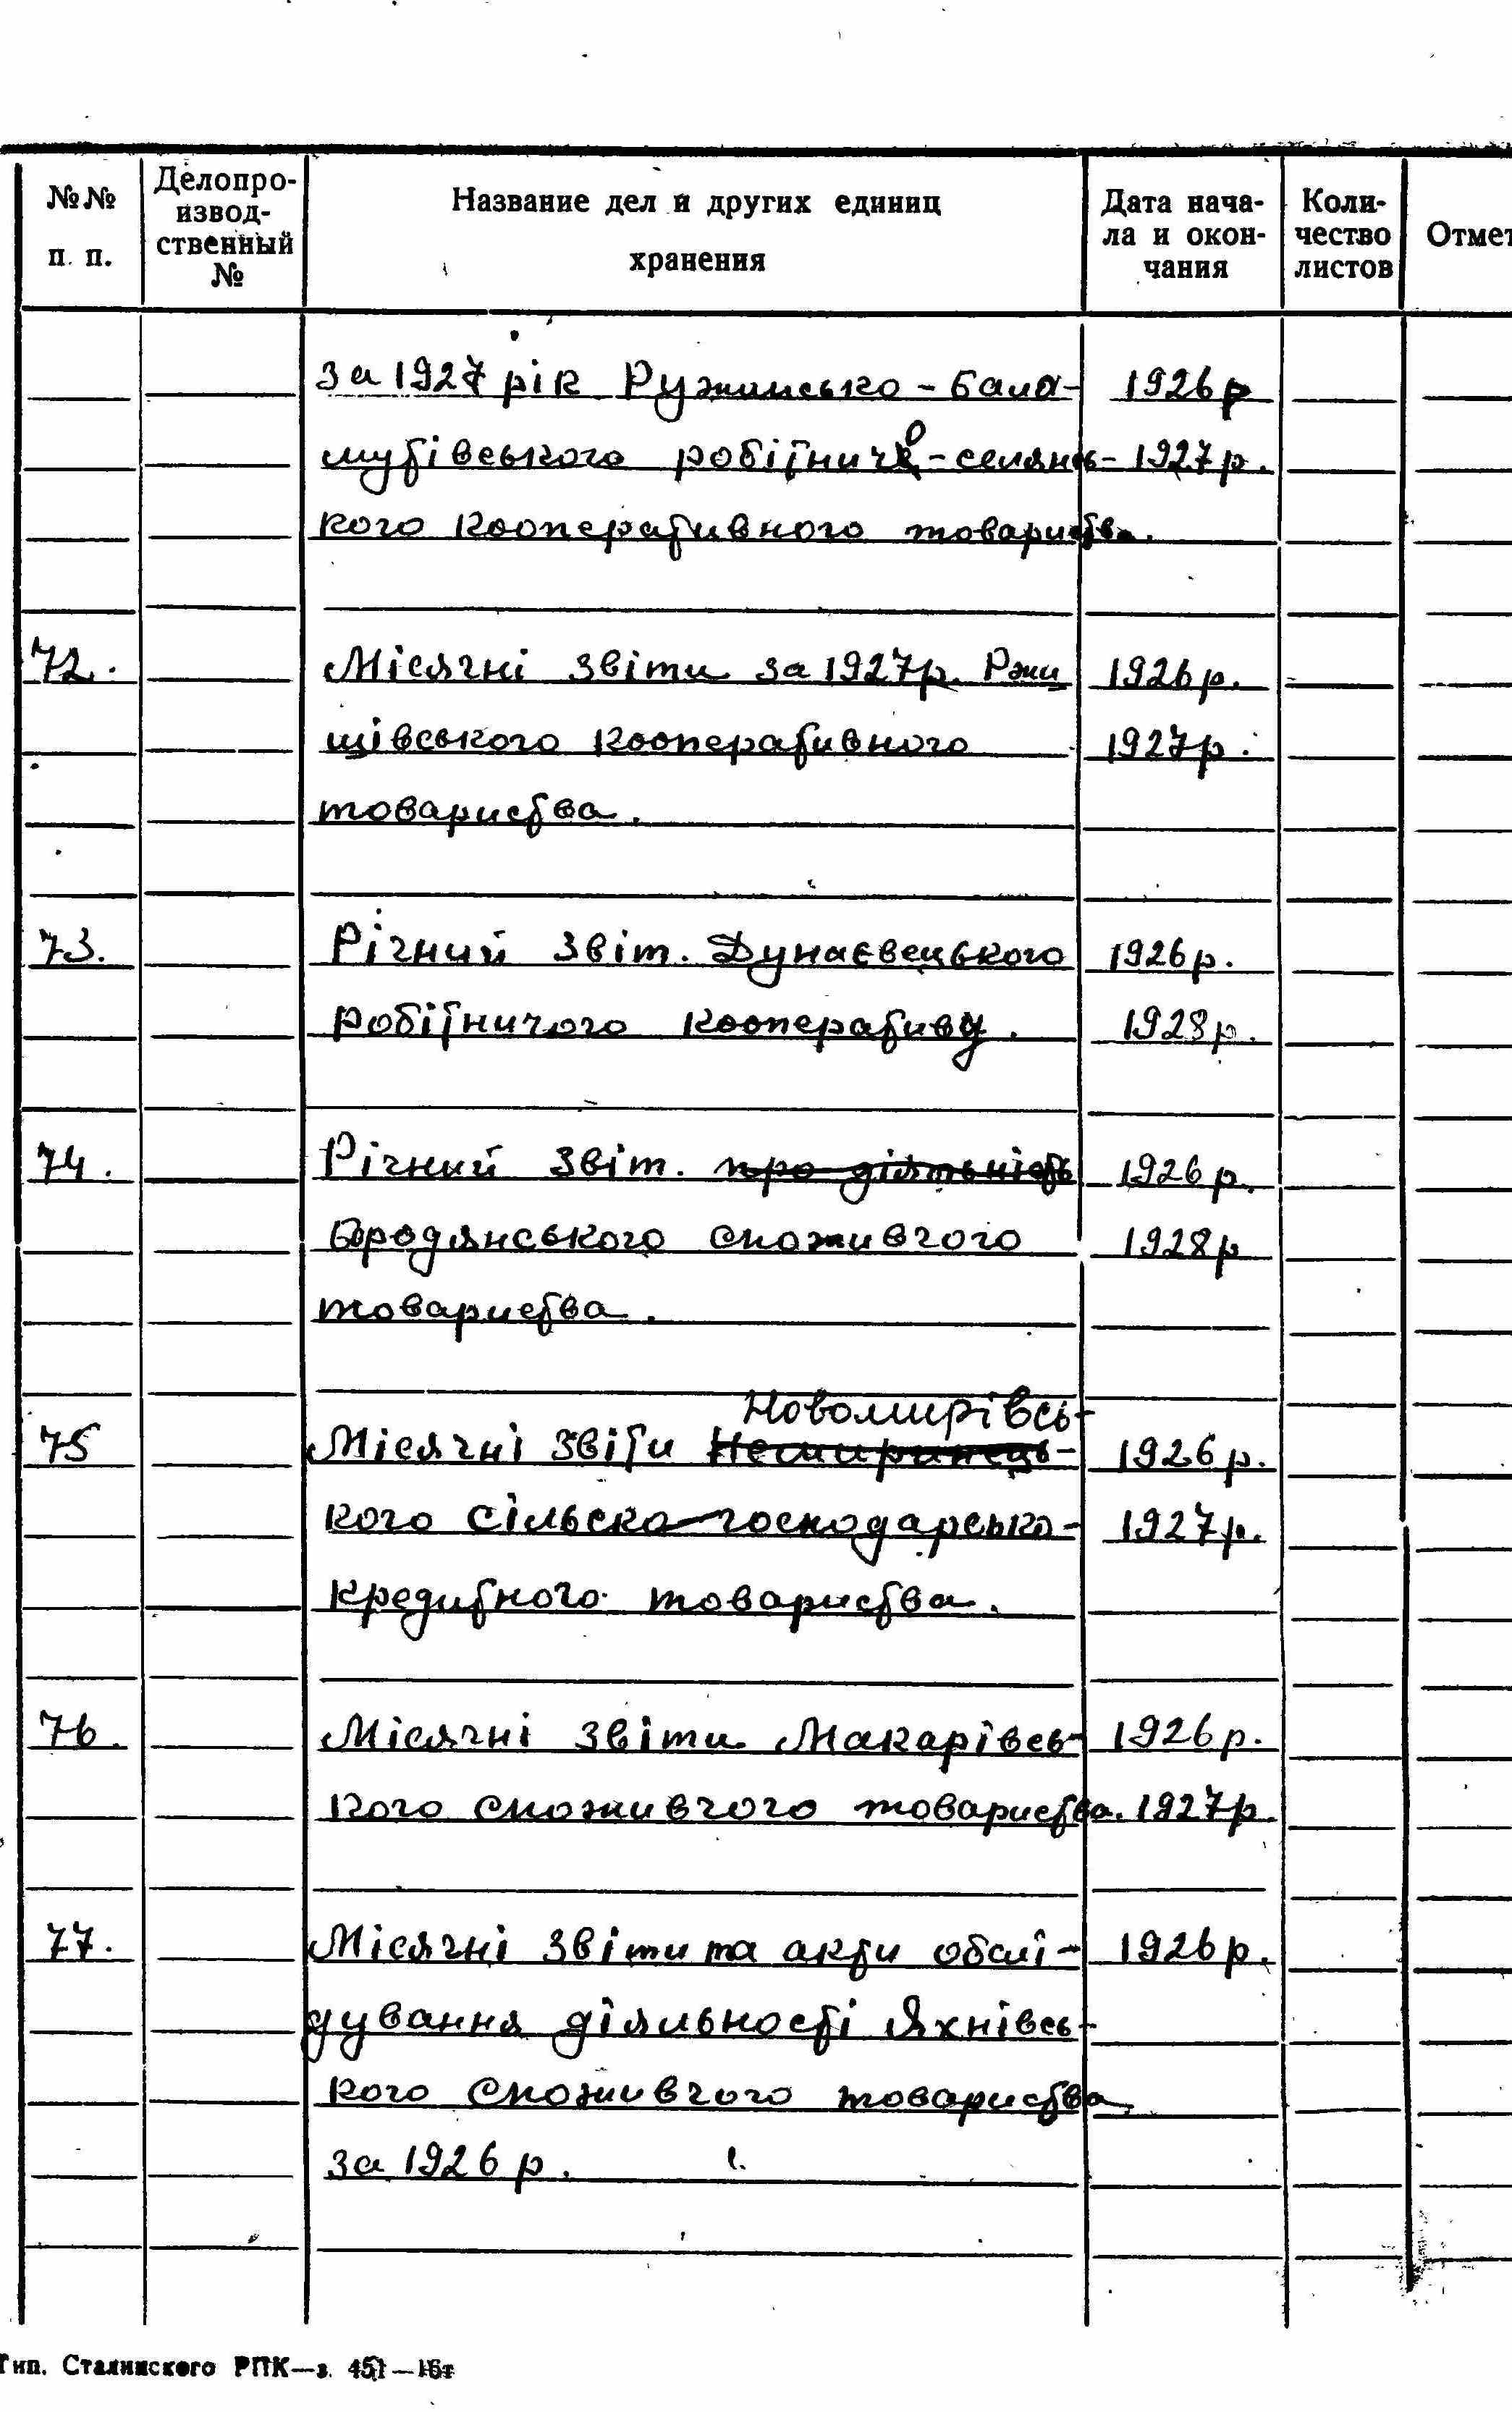 №№ п. п. Делопро-изводственный № Название дел и других единиц хранения Дата начала и окончания Количество листов Отмет
за 1927 рік Ружинсько-Бала- 1926р
мутівського робітничо-селянсь- 1927р.
кого кооперативного товариства.
72. Місячні звіти за 1927р. Ржи 1926р.
щівського кооперативного 1927р.
товариства.
73. Річний звіт. Дунаєвецького 1926р.
робітничого кооперативу. 1928р.
74. Річний звіт. про діяльність 1926р.
Бродянського споживчого 1928р
товариства.
Новомирівсь-
75 Місячні звіти Немиринець- 1926р.
кого сільско-господарсько- 1927р.
кредитного товариства.
76. Місячні звіти Макарівсь- 1926р.
кого споживчого товариства. 1927р.
77. Місячні звіти та акти обслі- 1926р.
дування діяльності Яхнівсь-
кого споживчого товариства
за 1926 р.
Тип. Сталинского РПК—з. 451—16т